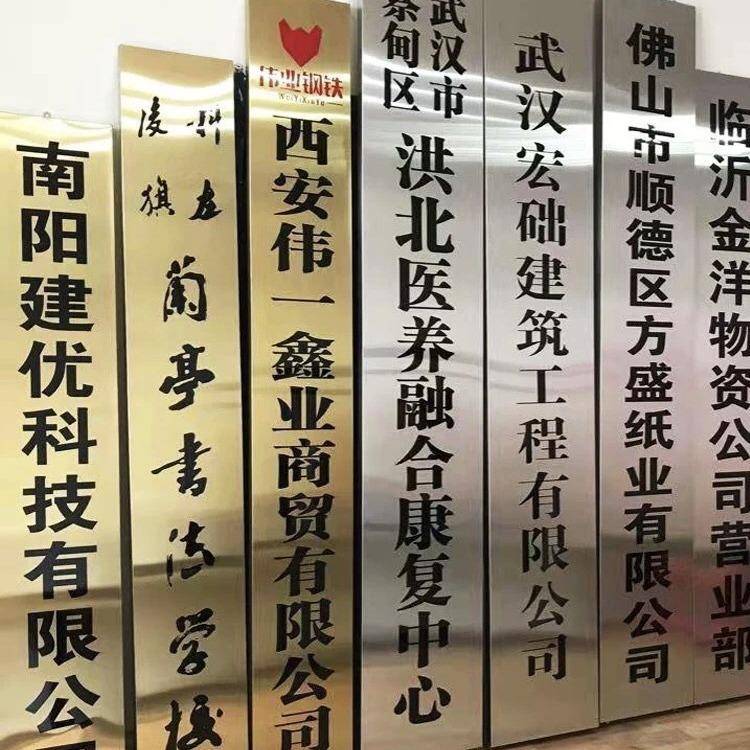 南阳建优科技有限公
科左
旗
蘭亭書法学校
伟业钢铁
西安伟一鑫业商贸有限公司
武汉市
蔡甸区
洪北医养融合康复中心
武汉宏础建筑工程有限公司
佛山市顺德区方盛纸业有限公司
临沂金洋物资公司营业部